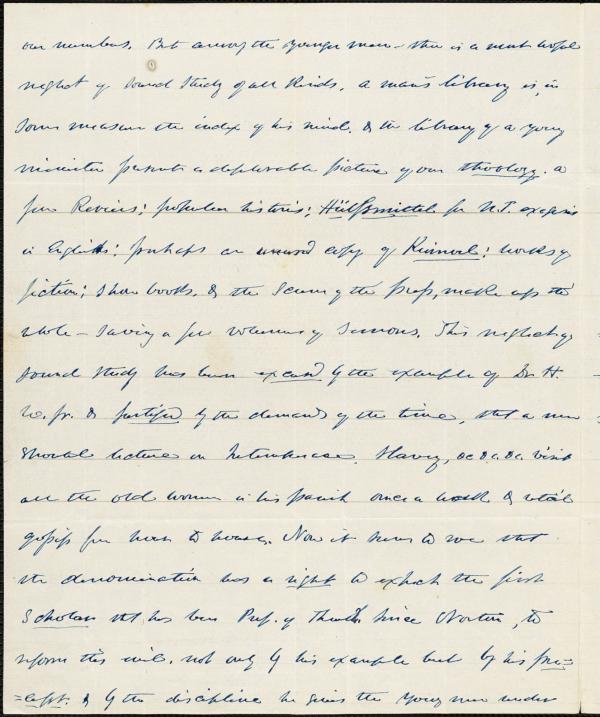 our numbers. But among the younger men – there is a most awful
neglect of sound study of all kinds. A man's library is, in
some measure the index of his mind, & the library of a young
minister presents a deplorable picture of our theology. a
few Reviews; popular histories; Hülfsmittel for N.T. exegesis
in English; perhaps an unused copy of Kuinoel; works of
fiction; show books, & the Scum of the press, make up the
whole – saving a few volumes of Sermons. This neglect of
sound study has been excused by the example of Dr H.
W. jr. & justified by the demands of the time, that a man
should lecture on temperance, Slavery, &c &c &c. visit
all the old women in his parish once a week & retail
gossip from house to house. Now it seems to me that
the denomination has a right to expect the first
Scholar that has been Prof. of Theol. since Norton, to
reform this evil, not only by his example but by his pre=
=cept. & by the discipline he gives the young men under